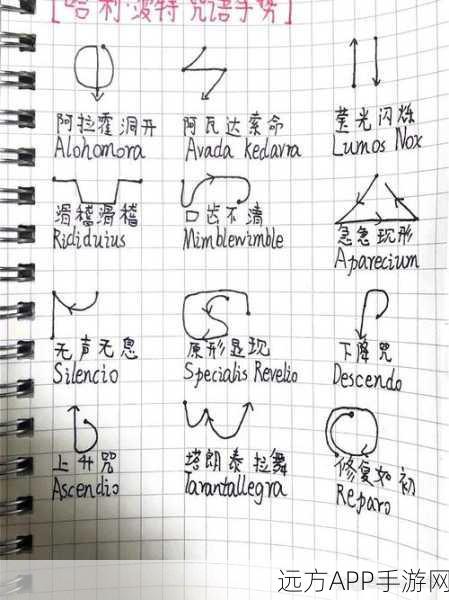 [哈利·波特 咒语手势]
阿拉霍洞开
Alohomora
阿瓦达索命
Avada Kedavra
莹光闪烁
Lumos Nox
滑稽滑稽
Rididuius
口齿不清
Mimblewimble
急急现形
Aparecium
无声无息
Silencio
原形显现
Specialis Revelio
下降咒
Descendo
上升咒
Ascendio
塔朗泰拉舞
Tarantallegra
修复如初
Reparo
远方APP手游网